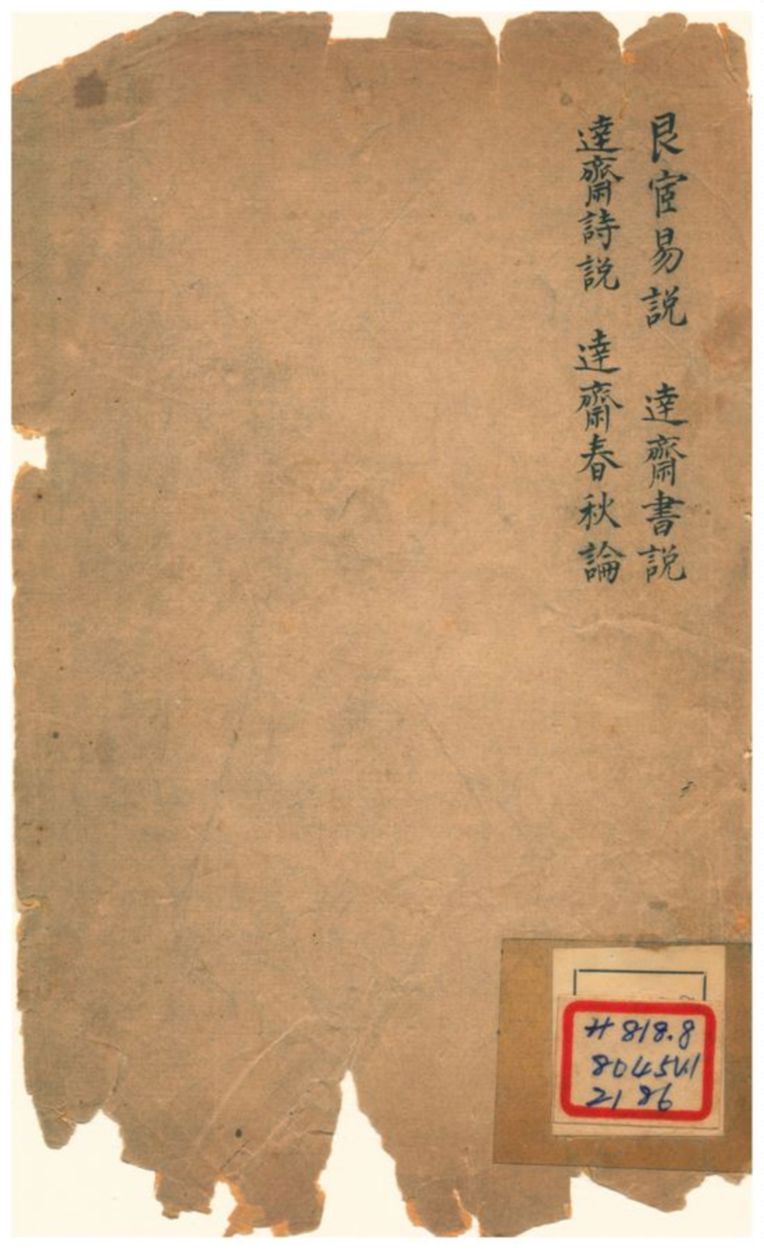 艮宧易説 達齋書説
達齋詩説 達齋春秋論
H 818.8
8045V.1
2186